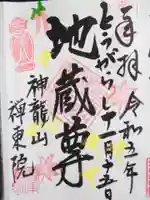 奉拝 令和五年
とうがらし 十一月五日
地蔵尊
神龍山
禅東院